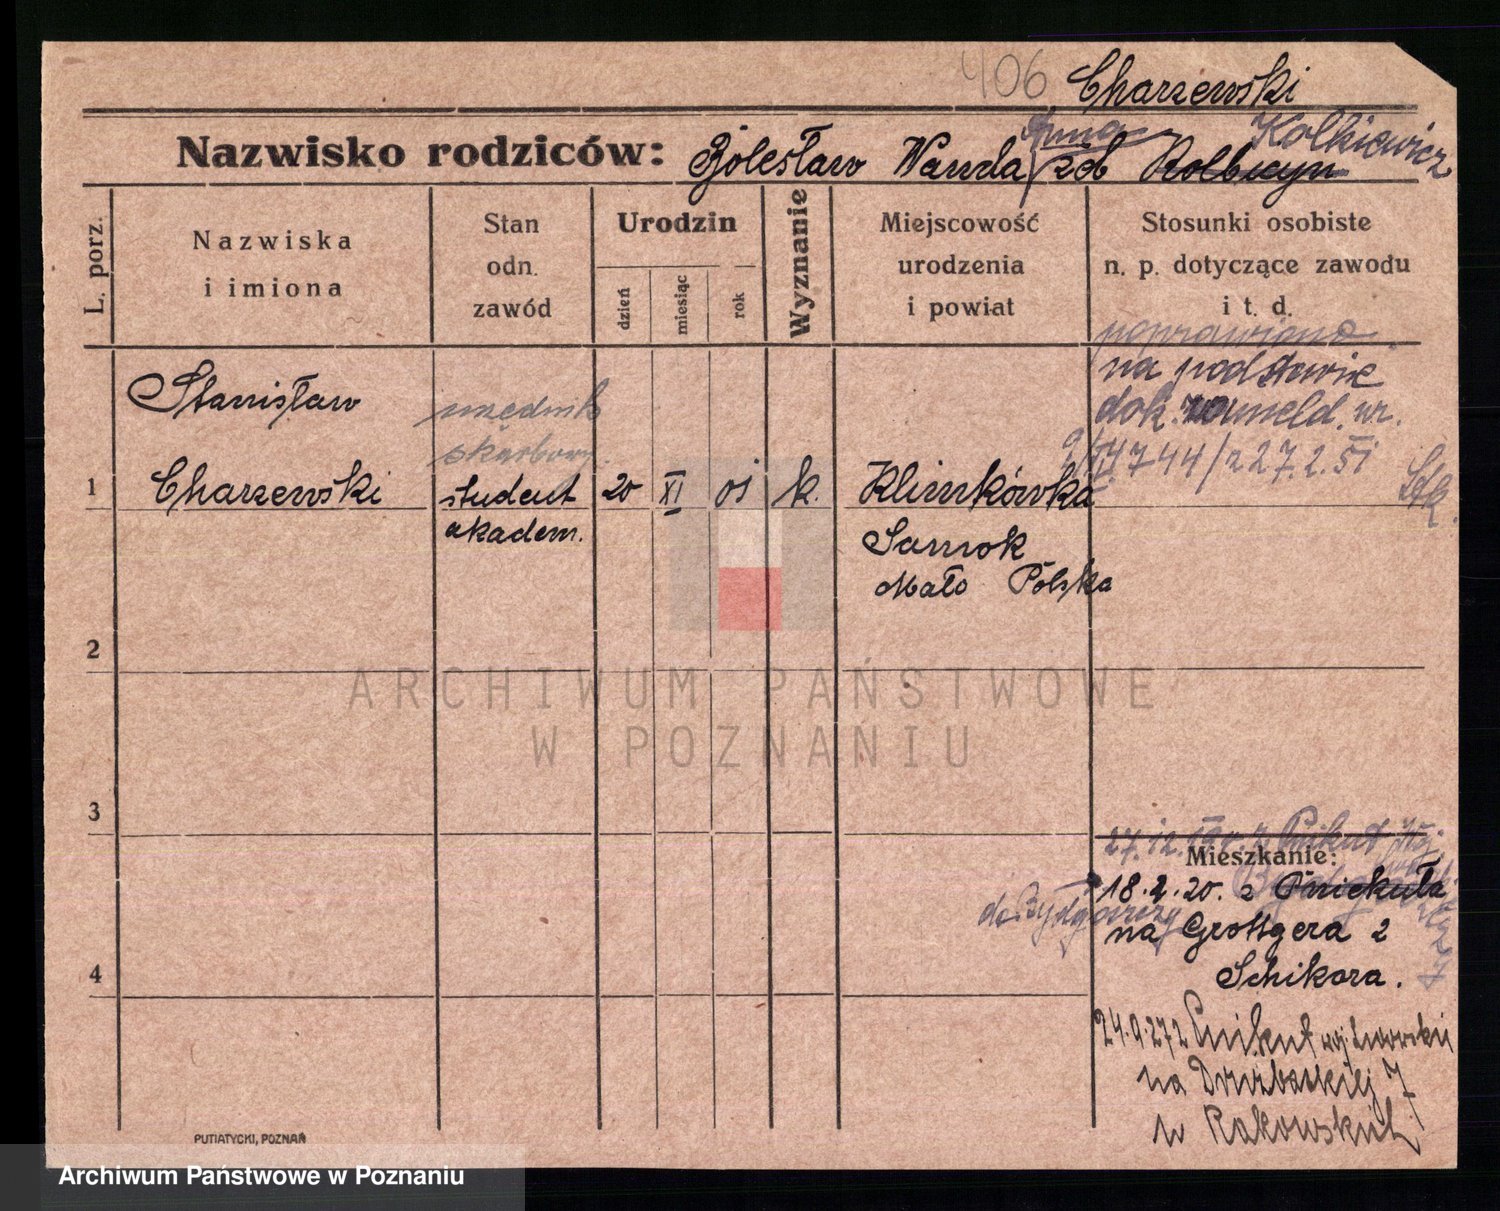 406 Charzewski
Anna Kolkiewicz
Nazwisko rodziców: Bolesław Wanda zd
L. porz.
Nazwiska
i imiona
Stan
odn.
zawód
Urodzin
dzień
miesiąc
rok
Wyznanie
Miejscowość
urodzenia
i powiat
Stosunki osobiste
n. p. dotyczące zawodu
i t. d.
poprawiono
na podstawie
dok. zameld. nr.
4744/z 27.2.51
Stanisław
urzędnik
skarbowy
1 Charzewski student 20 XI 01 k. Klimkówka
akadem.
Sanok
Mało Polska
2
3
4
27.12.
Mieszkanie:
18.2.20. z Pniekuta
do Bydgoszczy
na Grottgera 2
Schikora.
24.9.27 z Pnikut woj. Lwowskie
na 7
w Rakowskich
PUTIATYCKI, POZNAŃ
ARCHIWUM PAŃSTWOWE
W POZNANIU
Archiwum Państwowe w Poznaniu